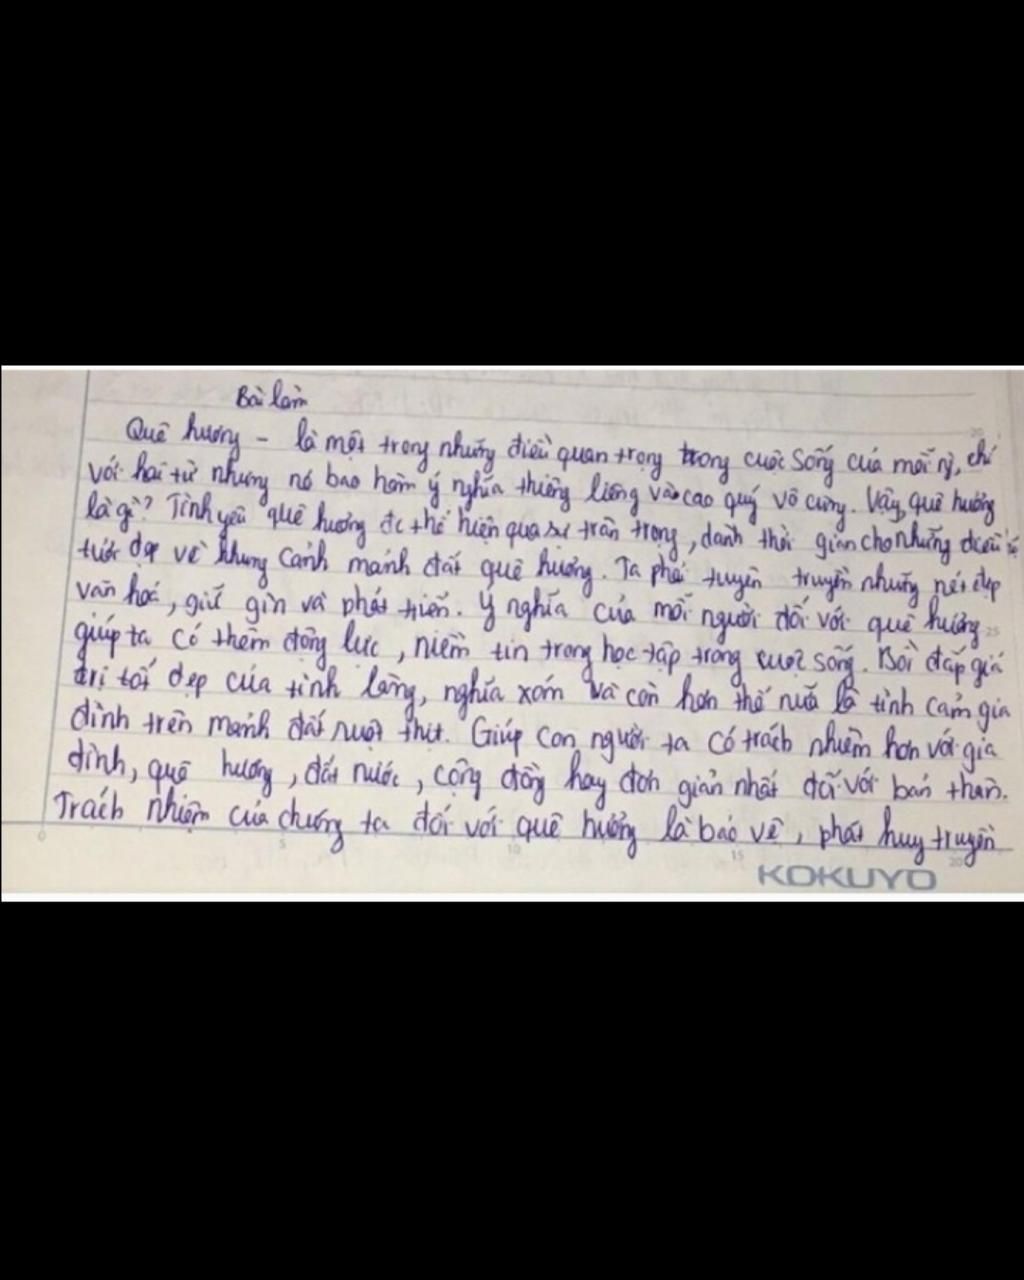 Bài làm
Quê hương - là một trong những điều quan trọng trong cuộc sống của mỗi ng, chỉ
với hai từ nhưng nó bao hàm ý nghĩa thiêng liêng và cao quý vô cùng. Vậy, quê hương
là gì? Tình yêu quê hương đc thể hiện qua sự trân trọng, dành thời gian cho những
đẹp về khung cảnh mảnh đất quê hương. Ta phải tuyên truyền những nét đẹp
văn hoá, giữ gìn và phát triển. Ý nghĩa của mỗi người đối với quê hương
giúp ta có thêm động lực, niềm tin trong học tập trong cuộc sống. Bồi đắp giá
trị tốt đẹp của tình làng, nghĩa xóm và còn hơn thế nữa là tình cảm gia
đình trên mảnh đất ruột thịt. Giúp con người ta có trách nhiệm hơn với gia
đình, quê hương, đất nước, cộng đồng hay đơn giản nhất đối với bản thân.
Trách nhiệm của chúng ta đối với quê hương là bảo vệ, phát huy truyền
5 10 15 20
KOKUYO